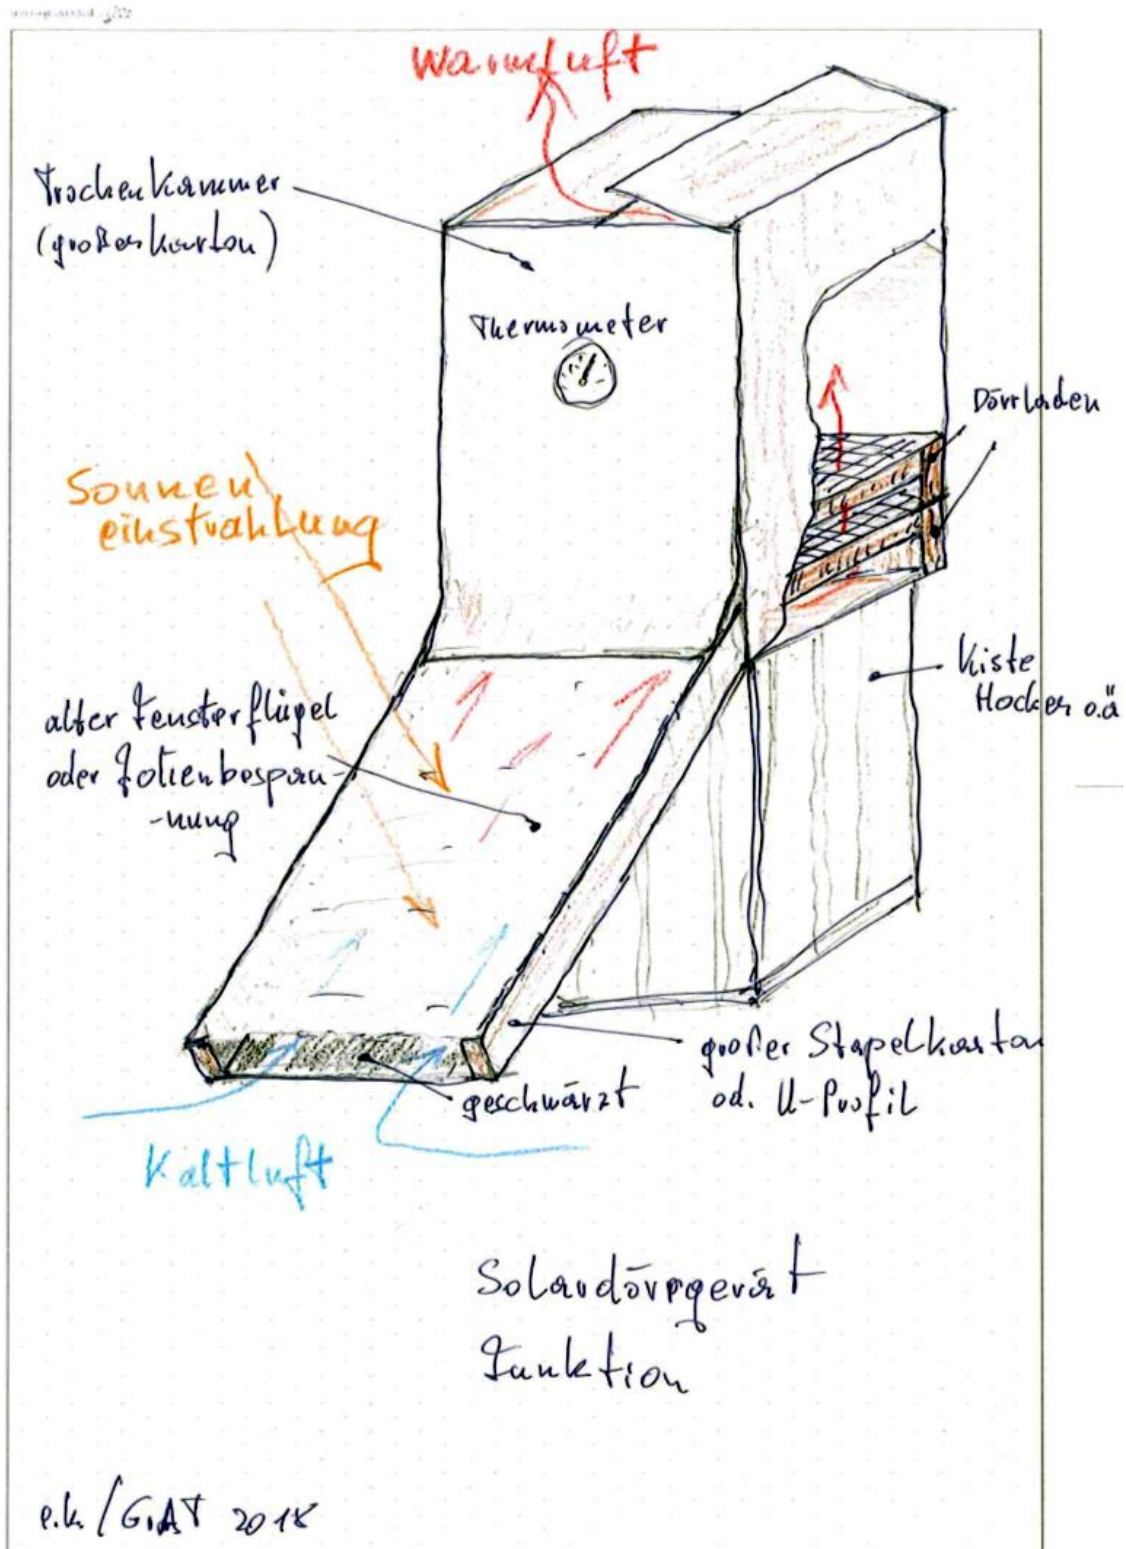 Warmluft
Trockenkammer
(großer Karton)
Thermometer
Dörrladen
Sonnen
einstrahlung
Kiste
Hocker o.ä
alter Fensterflügel
oder Folienbespan-
-nung
großer Stapelkarton
od. U-Profil
geschwärzt
Kaltluft
Solardörrgerät
Funktion
e.k. / G.A.T 2018